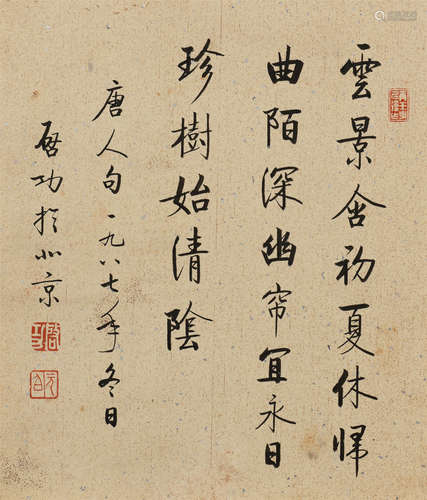 雲景含初夏休歸
曲陌深幽帘宜永日
珍樹始清陰
唐人句一九八七年冬日
啓功於北京
啓功
元白